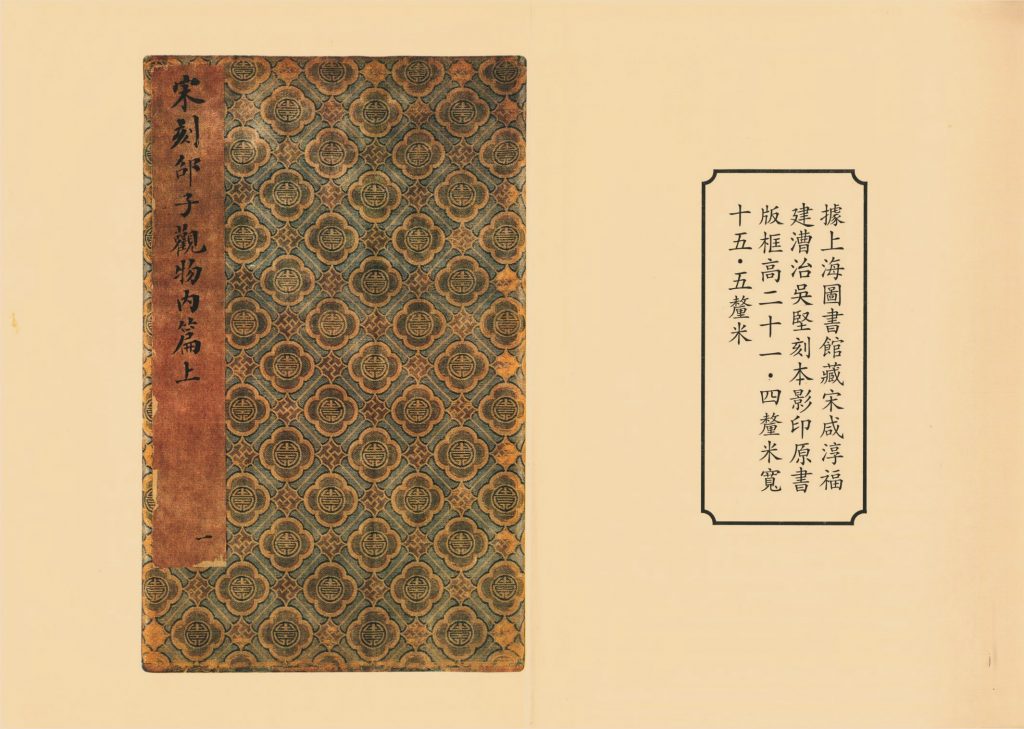 據上海圖書館藏宋咸淳福
建漕治吳堅刻本影印原書
版框高二十一·四釐米寬
十五·五釐米
宋刻邵子觀物内篇上
一